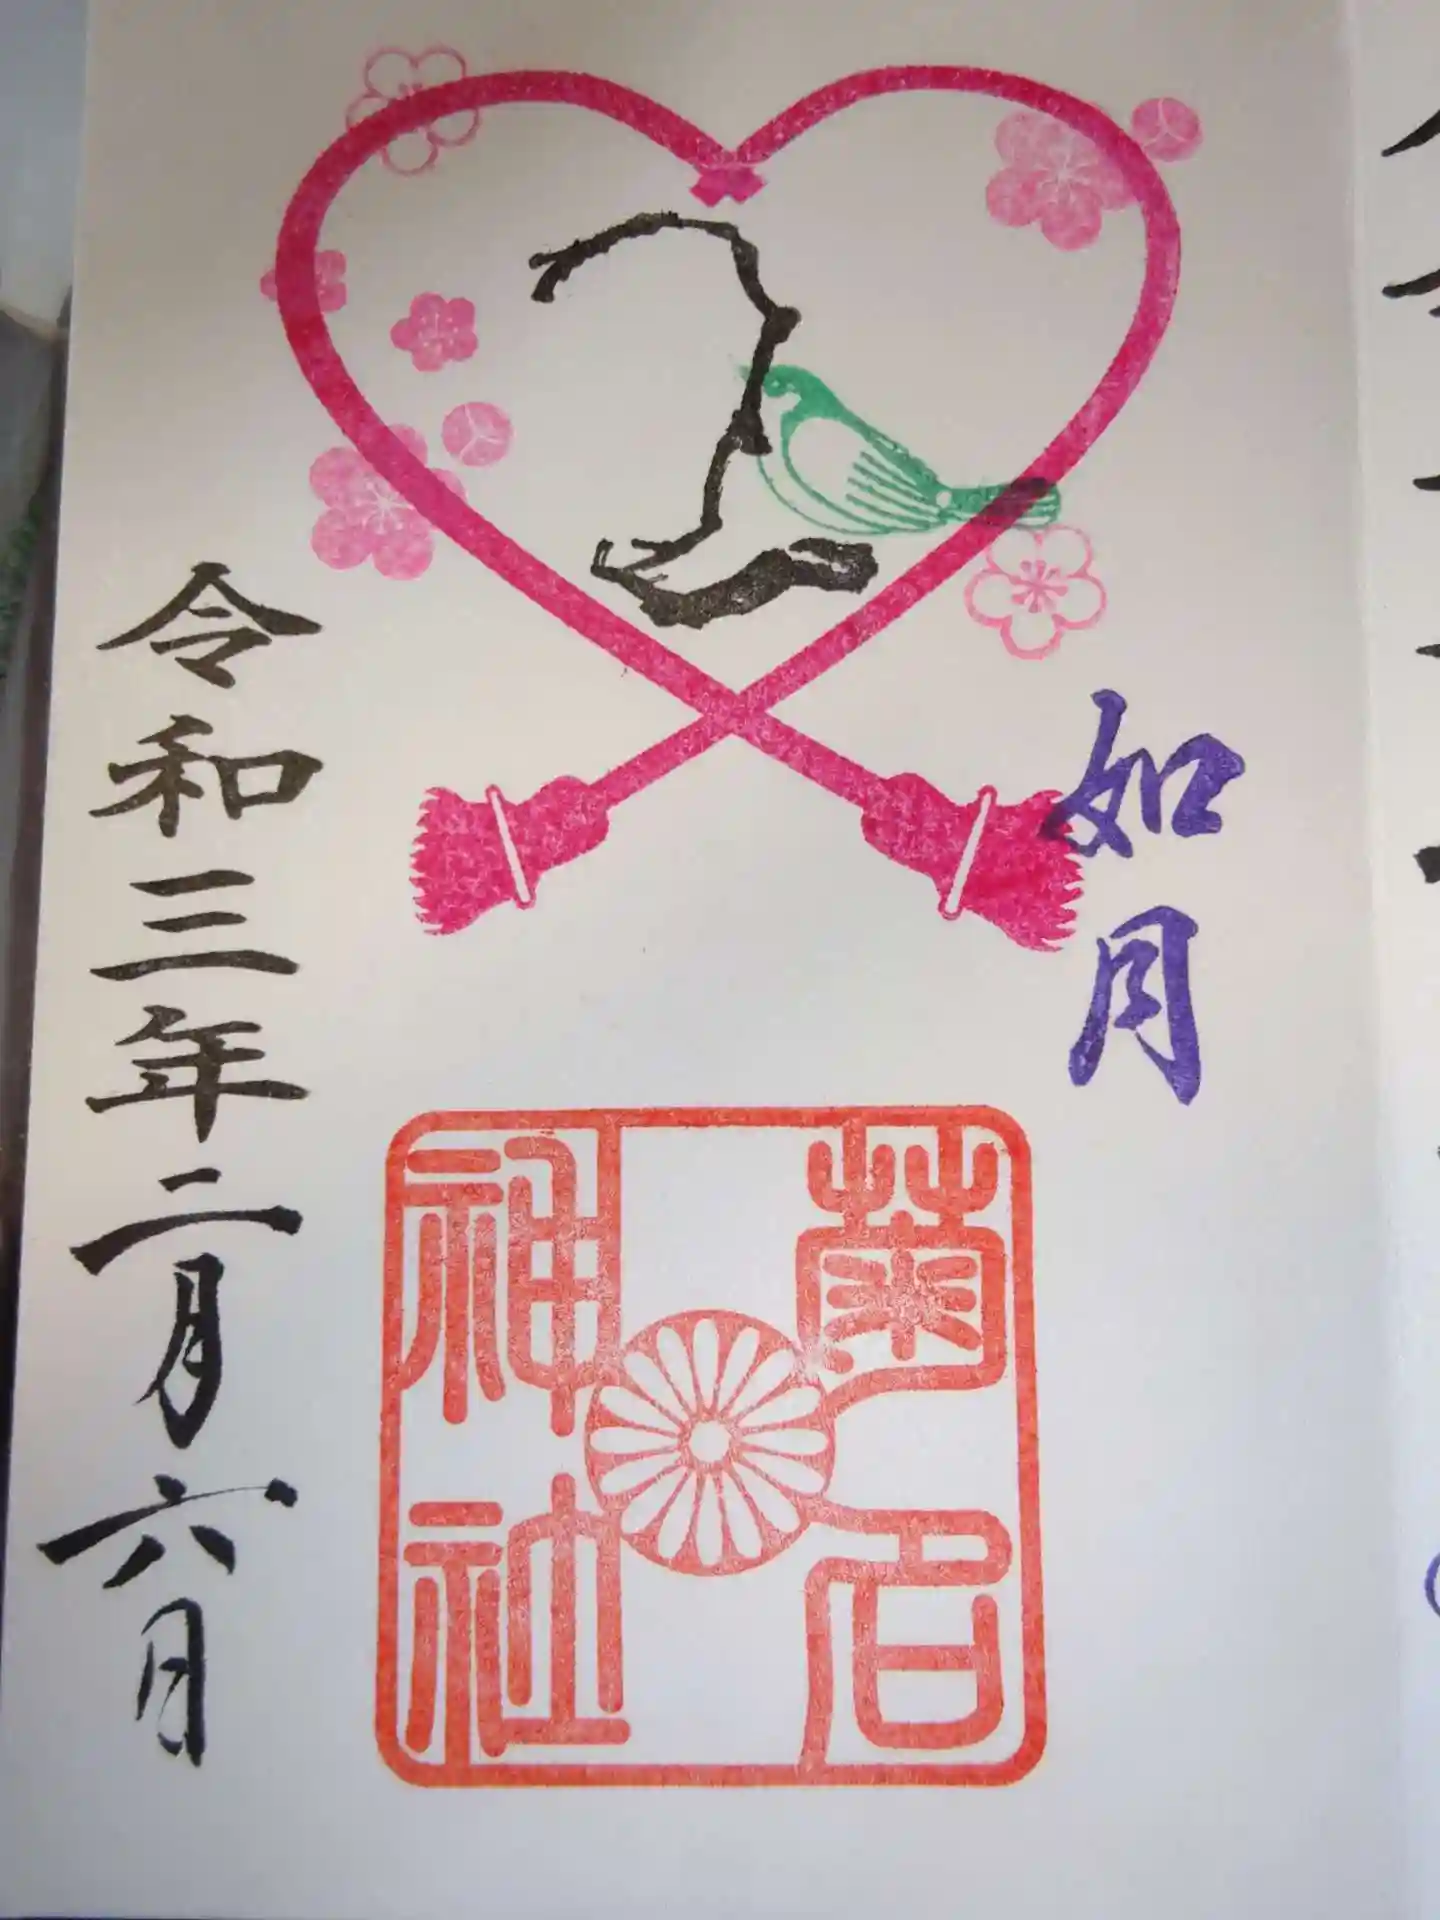 如月
菊名
神社
令和三年二月六月